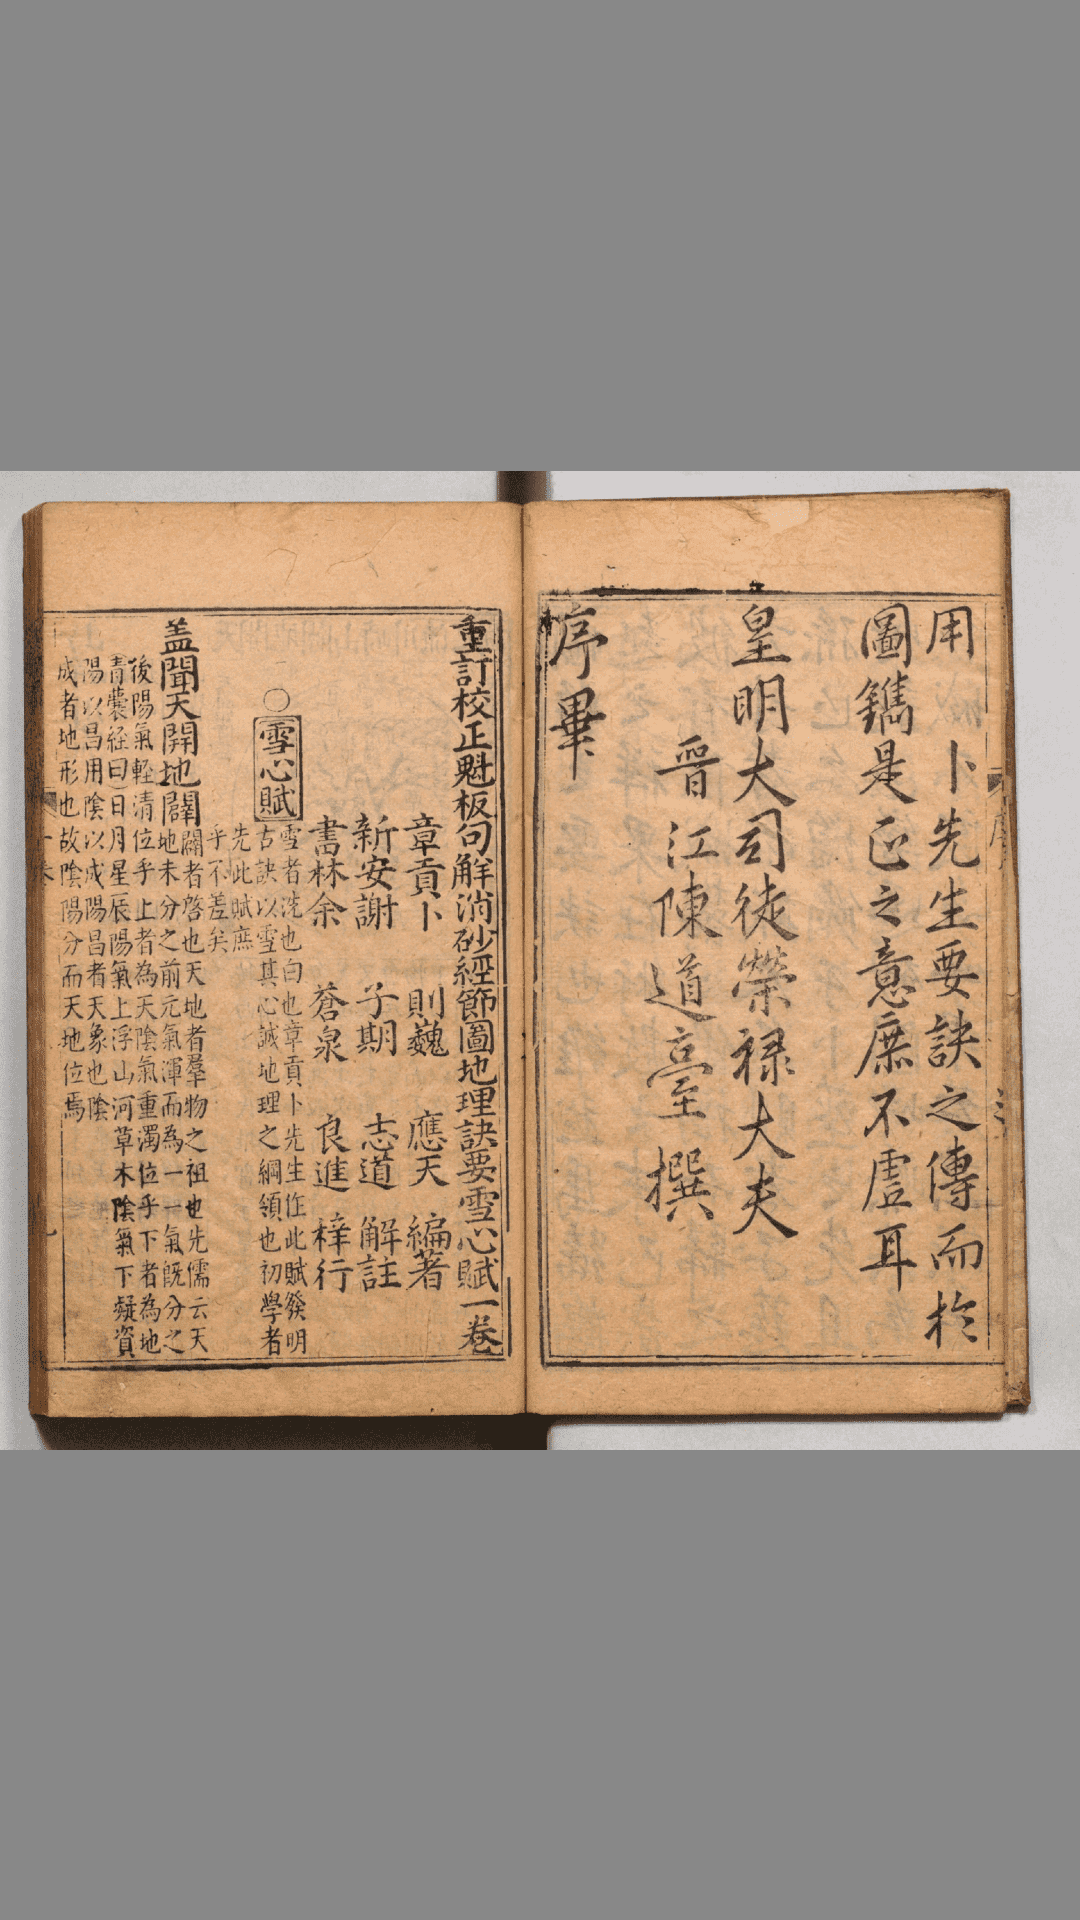 用卜先生要訣之傳而於
圖鐫是正之意庶不虛耳
皇明大司徒榮祿大夫
晉江陳道臺撰
序畢
重訂校正魁板句解消砂經節圖地理訣要雪心賦一卷
章貢卜 則巍 應天 編著
新安謝 子期 志道 解註
書林余 蒼泉 良進 梓行
○雪心賦
雪者洗也白也章貢卜先生作此賦發明
古訣以雪其心誠地理之綱領也初學者
先此賦庶
乎不差矣
盖聞天開地闢
闢者啓也天地者羣物之祖也先儒云天
地未分之前元氣渾而為一一氣既分之
後陽氣輕清位乎上者為天陰氣重濁位乎下者為地
青囊經曰日月星辰陽氣上浮山河草木陰氣下凝資
陽以昌用陰以成陽昌者天象也陰
成者地形也故陰陽分而天地位焉